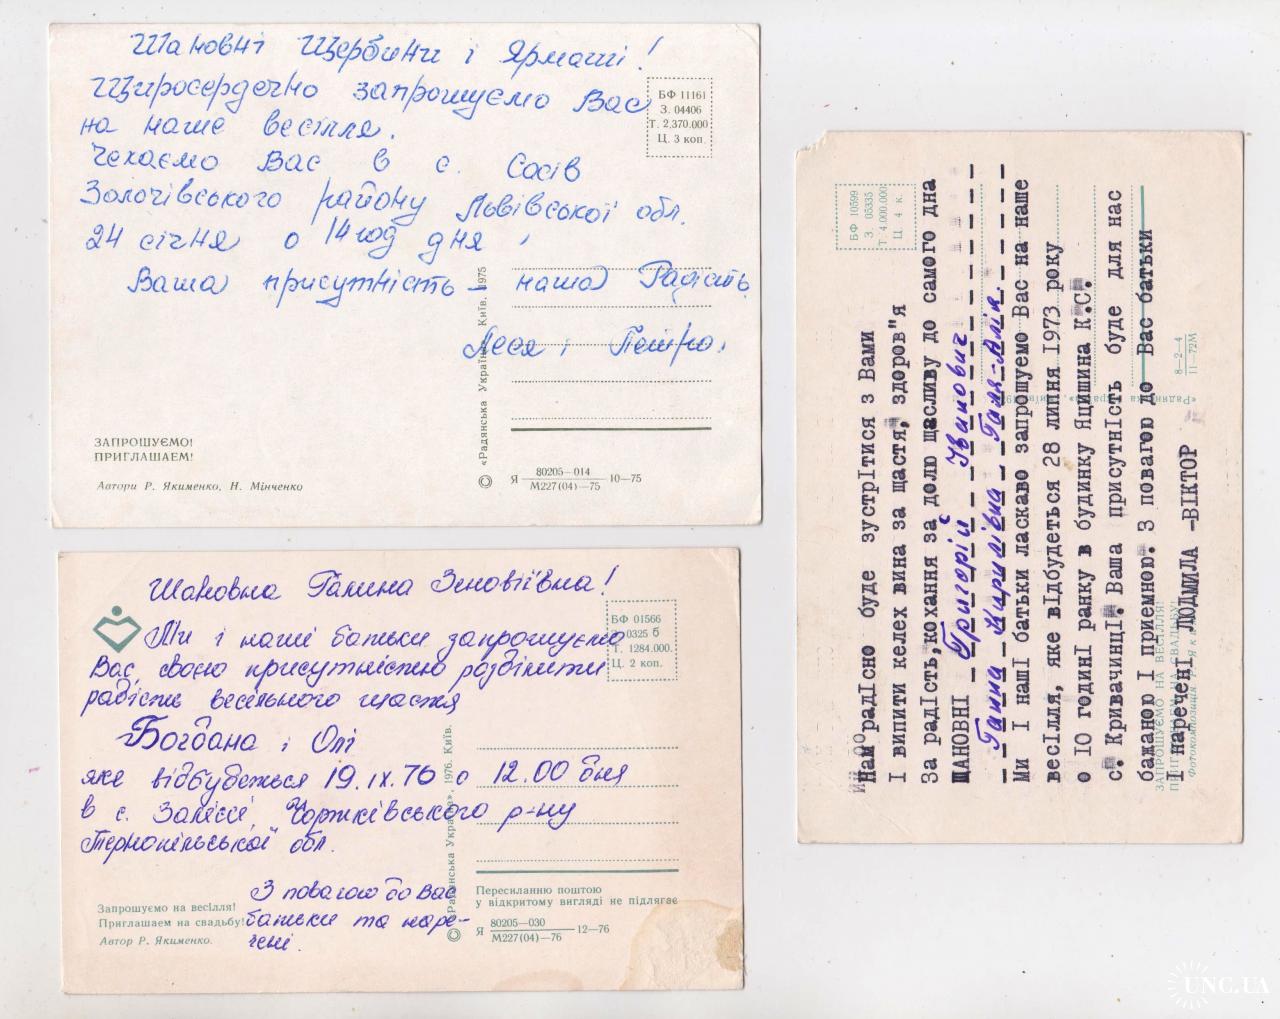 Шановні Щербини і Ярмаші!
Щиросердечно запрошуємо Вас
на наше весілля.
Чекаємо Вас в с. Сасів
Золочівського району Львівської обл.
24 січня о 14 год дня
Ваша присутність – наша Радість.
Леся і Петро.
БФ 11161
З. 04406
Т. 2,370.000
Ц. 3 коп.
ЗАПРОШУЄМО!
ПРИГЛАШАЕМ!
Автори Р. Якименко, Н. Мінченко
© «Радянська Україна». Київ. 1975
Я 80205—014 10—75
М227(04)—75
Шановна Галина Зеновіївна!
Ми і наші батьки запрошуємо
Вас, своєю присутністю розділити
радість весільного щастя
Богдана і Олі
яке відбудеться 19.IX.76 о 12.00 дня
в с. Заліссі, Чортківського р-ну
Тернопільської обл.
З повагою до Вас
батьки та наре-
чені.
БФ 01566
0325 б
Т. 1284.000.
Ц. 2 коп.
Запрошуємо на весілля!
Приглашаем на свадьбу!
Автор Р. Якименко.
© «Радянська Україна», 1976. Київ.
Пересиланню поштою
у відкритому вигляді не підлягає
Я 80205—030 12—76
М227(04)—76
Нам радІсно буде зустрІтися з Вами
І випити келех вина за щастя, здоров"я
За радІсть,кохання за долю щасливу до самого дна
ШАНОВНІ Григорій Іванович
Ганна Кирилівна Галя-Алік.
Ми І нашІ батьки ласкаво запрошуємо Вас на наше
весІлля, яке вІдбудеться 28 липня І973 року
о ІО годинІ ранку в будинку Яцишина К.С.
с. КривачинцІ. Ваша присутнІсть буде для нас
бажаною І приємною. З повагою до Вас батьки
І нареченІ ЛЮДМИЛА -ВІКТОР
БФ 10599
З. 05335
Т. 4.000.000
Ц. 4 к.
8—2—4
11—72М
ЗАПРОШУЄМО НА ВЕСІЛЛЯ!
ПРИГЛАШАЕМ НА СВАДЬБУ!
Фотокомпозиція Р. Якименка
UNC.UA